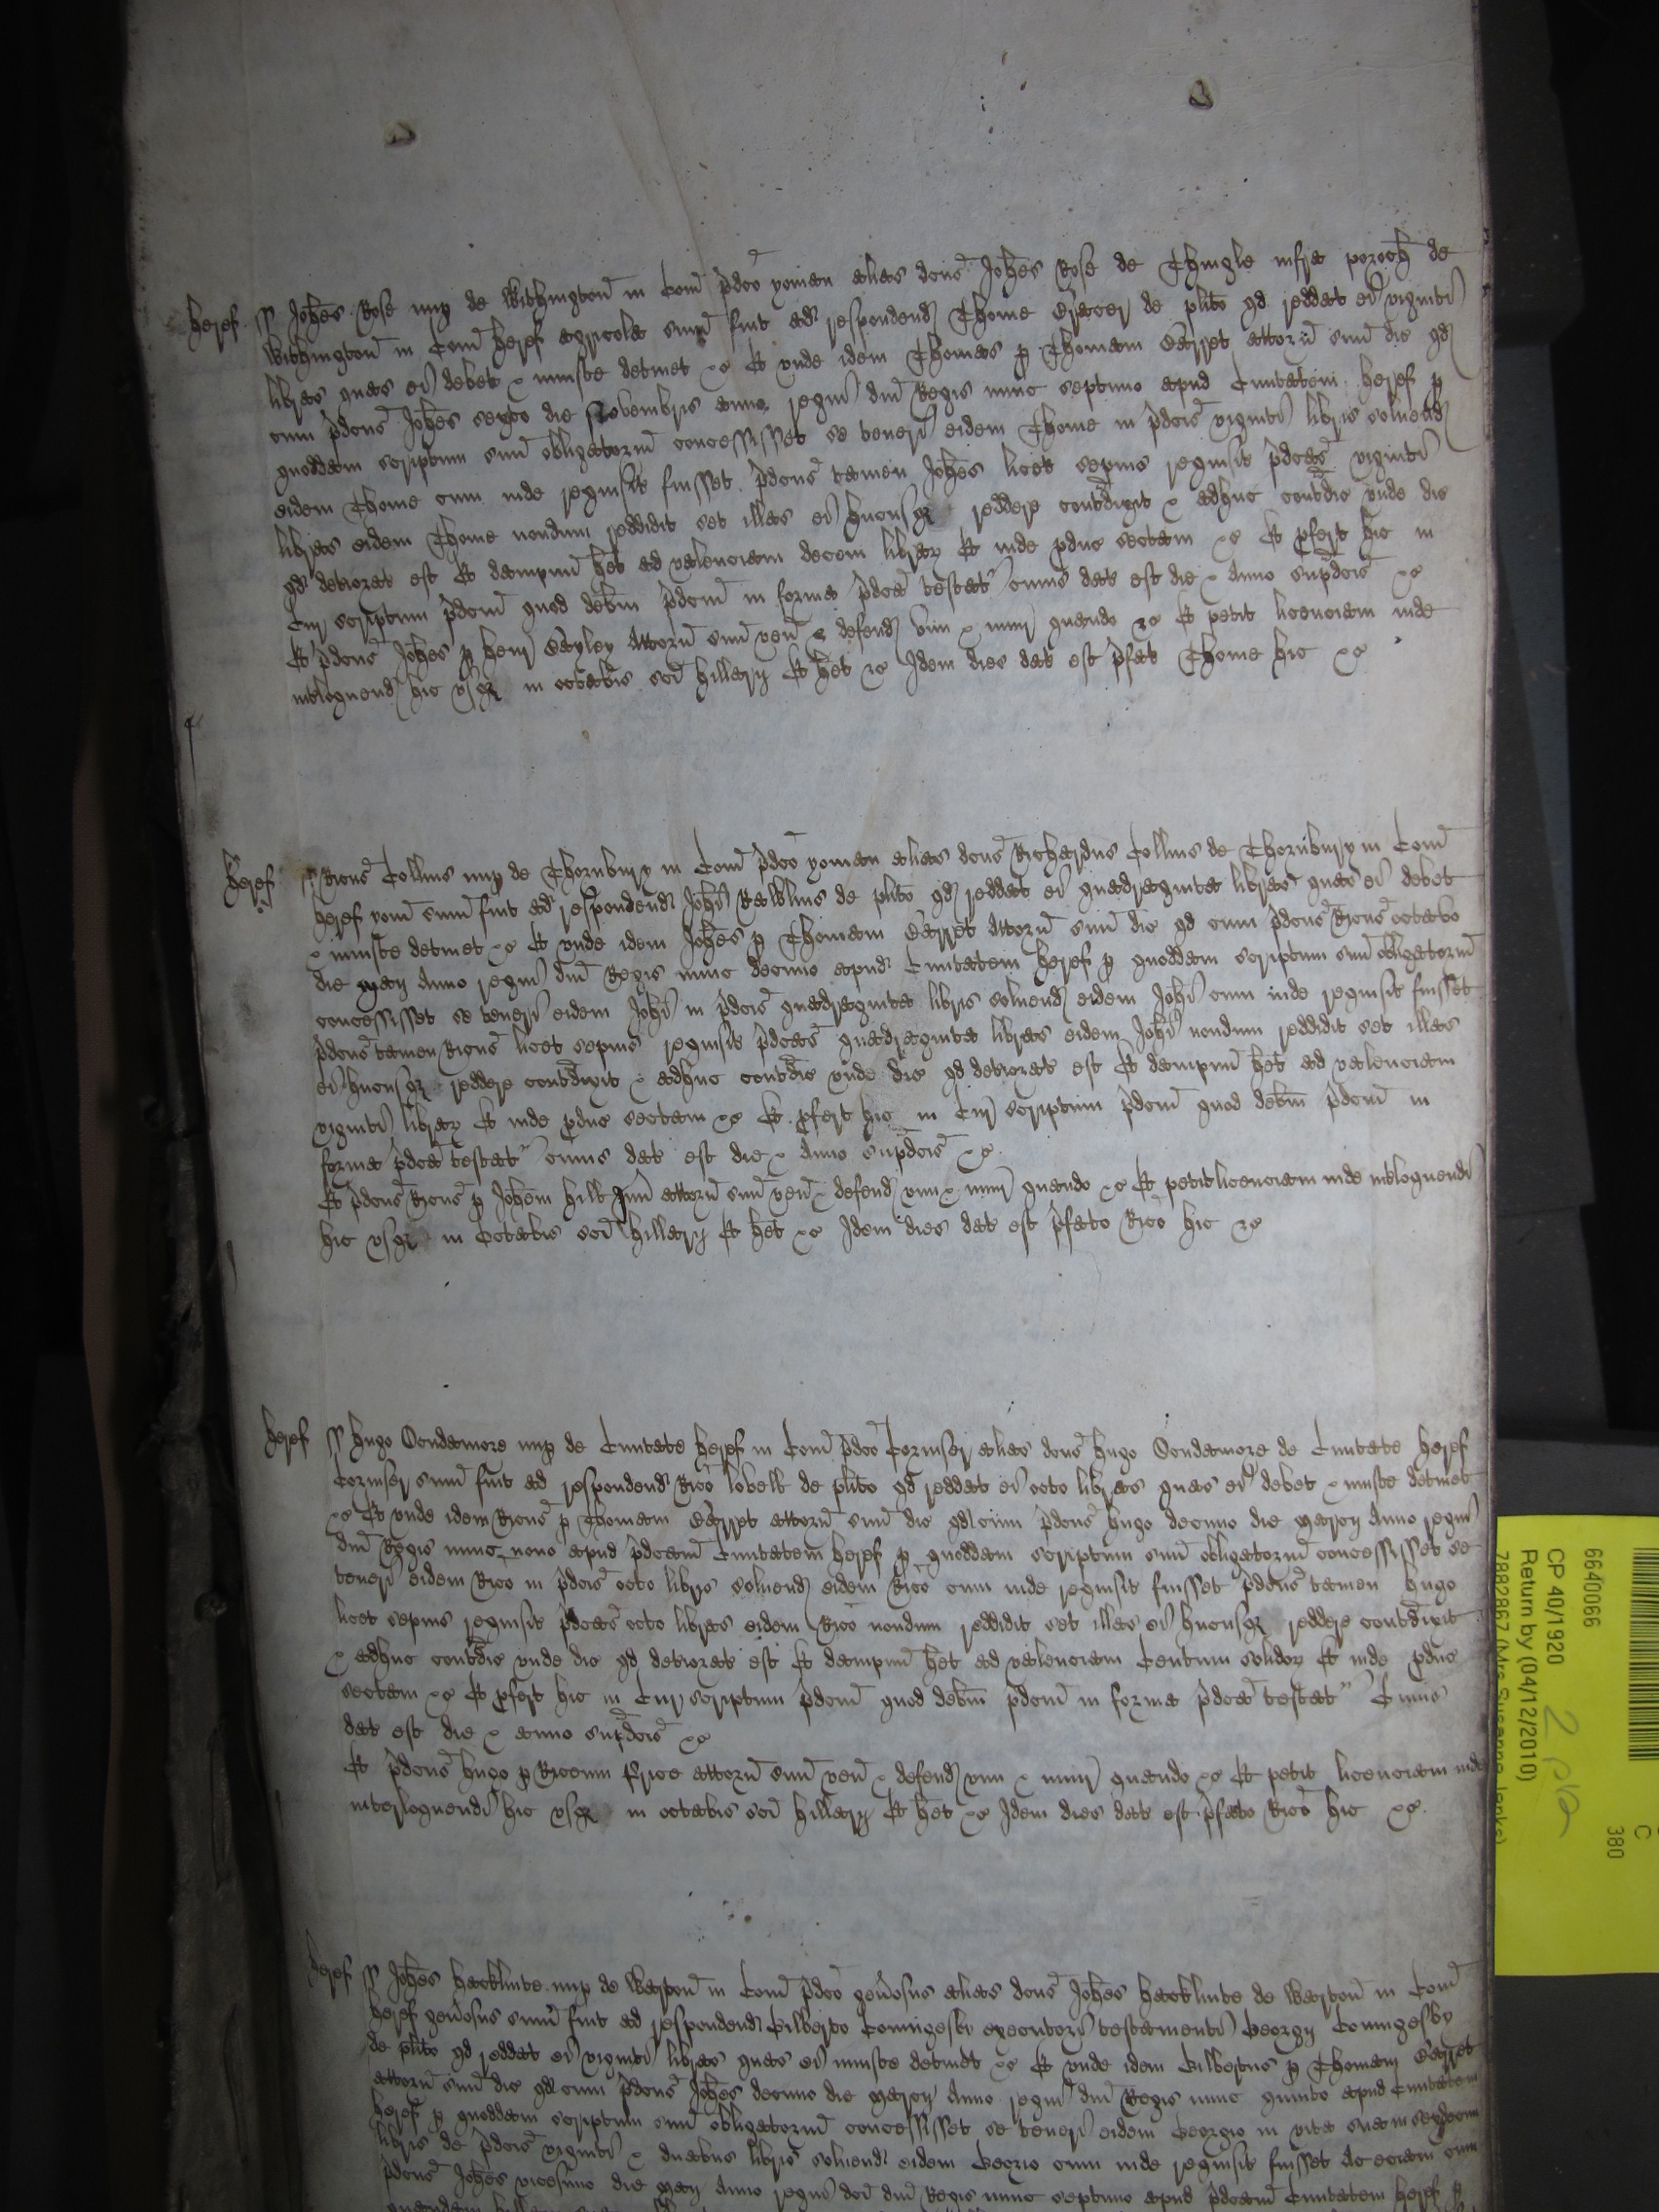 Heref ss Johes Rose nup de Withington in Com pdco yoman alias dcus Johes Rose de Thingle infra poroch de
Withington in Com Heref agricola sum fuit ad respondend Thome de plito qd reddat ei viginti
libras quas ei debet & iniuste detinet &c Et unde idem Thomas p Thomam attorn suu dic qd
cum pdcus Johes sexto die Novembris anno regni dni Regis nunc septimo apud Civitatem Heref p
quoddam scriptum suu obligatoriu concessisset se teneri eidem Thome in pdcis viginti libris solvend
eidem Thome cum inde requisit fuisset pdcus tamen Johes licet sepius requisit pdcas viginti
libras eidem Thome nondum reddidit set illas ei hucusq reddere contdixit & adhuc contdic unde dic
qd deteriorat est Et dampnu het ad valenciam decem librar Et inde pduc sectam &c Et pfert hic in
Cur scriptum pdcm quod debm pdcm in forma pdca testat cuius dat est die & Anno supdcis &c
Et pdcus Johes p Henr Attorn suu ven & defend vim & iniur quando &c Et petit licenciam inde
intloquend hic usq in octabis sci Hillarij Et het &c Idem dies dat est pfat Thome hic &c
Heref ss Ricus Collins nup de Thornbury in Com pdco yoman alias dcus Richardus Collins de Thornbury in Com
Heref yom sum fuit ad respondend Johi de plito qd reddat ei quadraginta libras quas ei debet
& iniuste detinet &c Et unde idem Johes p Thomam Attorn suu dic qd cum pdcus Ricus octavo
die Maij Anno regni dni Regis nunc decimo apud Civitatem Heref p quoddam scriptum suu obligatoriu
concessisset se teneri eidem Johi in pdcis quadraginta libris solvend eidem Johi cum inde requisit fuisset
pdcus tamen Ricus licet sepius requisit pdcas quadraginta libras eidem Johi nondum reddidit set illas
ei hucusq reddere contdixit & adhuc contdic unde dic qd deteriorat est Et dampnu het ad valenciam
viginti librar Et inde pduc sectam &c Et pfert hic in Cur scriptum pdcm quod debm pdcm in
forma pdca testat cuius dat est die & Anno supdcis &c
Et pdcus Ricus p Johem Hill Jun attorn suu ven & defend vim & iniur quando &c Et petit licenciam inde intloquendi
hic usq in Octabis sci Hillarij Et het &c Idem dies dat est pfato Rico hic &c
Heref ss Hugo nup de Civitate Heref in Com pdco Corviser alias dcus Hugo de Civitate Heref
Corviser sum fuit ad respondend Rico Lobell de plito qd reddat ei octo libras quas ei debet & iniuste detinet
&c Et unde idem Ricus p Thomam attorn suu dic qd cum pdcus Hugo decimo die Marcij Anno regni
dni Regis nunc nono apud pdcam Civitatem Heref p quoddam scriptum suu obligatoriu concessisset se
teneri eidem Rico in pdcis octo libris solvend eidem Rico cum inde requisit fuisset pdcus tamen Hugo
licet sepius requisit pdcas octo libras eidem Rico nondum reddidit set illas ei hucusq reddere contdixit
& adhuc contdic unde dic qd deteriorat est Et dampnu het ad valenciam Centum solidor Et inde pduc
sectam &c Et pfert hic in Cur scriptum pdcm quod debm pdcm in forma pdca testat Cuius
dat est die & anno supdcis &c
Et pdcus Hugo p Ricum Price attorn suu ven & defend vim & iniur quando &c Et petit licenciam inde
interloquendi hic usq in octabis sci Hillarij Et het &c Idem dies dat est pfato Rico hic &c
Heref ss Johes Hackluite nup de in Com pdco genosus alias dcus Johes Hackluite de in Com
Heref genosus sum fuit ad respondend Gilberto Coningesby executori testamenti Georgij Coningesby
de plito qd reddat ei viginti libras quas ei iniuste detinet &c Et unde idem Gilbertus p Thomam
attorn suu dic qd cum pdcus Johes decimo die Marcij Anno regni dni Regis nunc quinto apud Civitatem
Heref p quoddam scriptum suu obligatoriu concessisset se teneri eidem Georgio in vita sua in
libris de pdcis viginti & duabus libris solvend eidem Georgio cum inde requisit fuisset Ac eciam cum
pdcus Johes vicesimo die Maij Anno regni dci dni Regis nunc septimo apud pdcam Civitatem Heref p
6640066
CP 40/1920
Return by (04/12/2010)
380
C